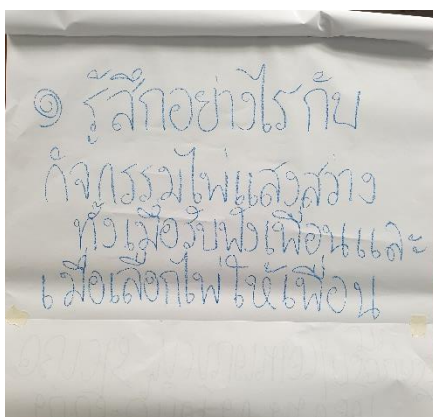 ๑ รู้สึกอย่างไรกับ
กิจกรรมไพ่แสงสว่าง
ทั้งเมื่อรับฟังเพื่อนและ
เมื่อเลือกไพ่ให้เพื่อน